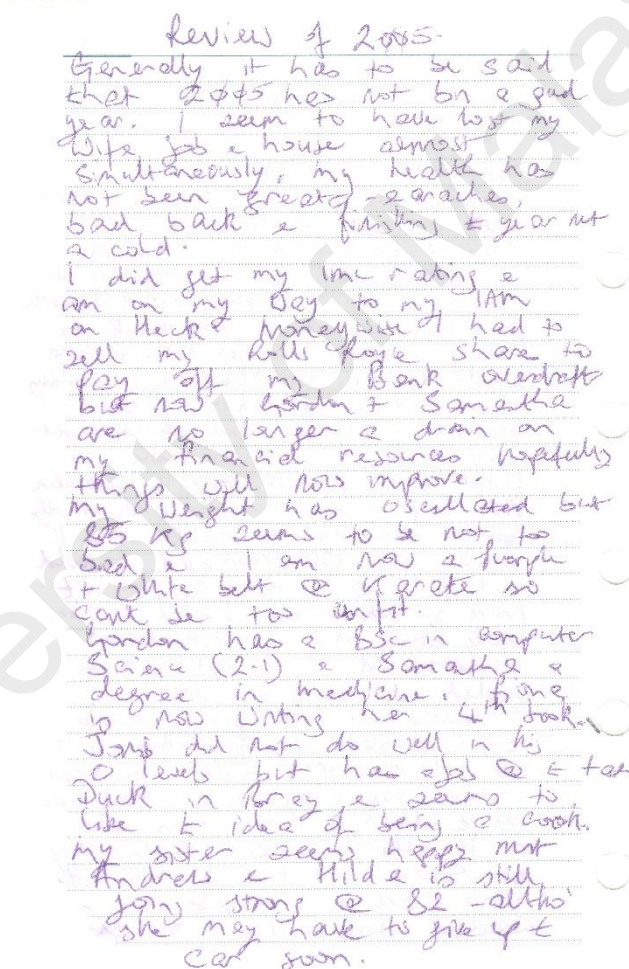 Review of 2005.
Generally it has to be said
that 2005 has not bn a gud
year. I seem to have lost my
wife job & house almost
simultaneously, my health has
not been great, earaches,
bad back & finishing t year
a cold.
I did get my IMC rating &
am on my way to my IAM
on Heck. Moneywise I had to
sell my Rolls Royce share to
pay off my Bank overdraft
but now Gordon + Samantha
are no longer a drain on
my financial resources hopefully
things will now improve.
my weight has oscillated but
85 kg seems to be not too
bad & I am now a purple
+ white belt @ Karate so
cant be too unfit.
Gordon has a BSc in computer
Science (2.1) & Samantha a
degree in medicine.
is now writing her 4th book.
did not do well in his
O levels but has a job @ t
Duck in Bray & seems to
like t idea of being a cook.
my sister seems happy
Andrew & Hilde is still
going strong @ 82 - altho'
she may have to give up t
car soon.
University of Mala